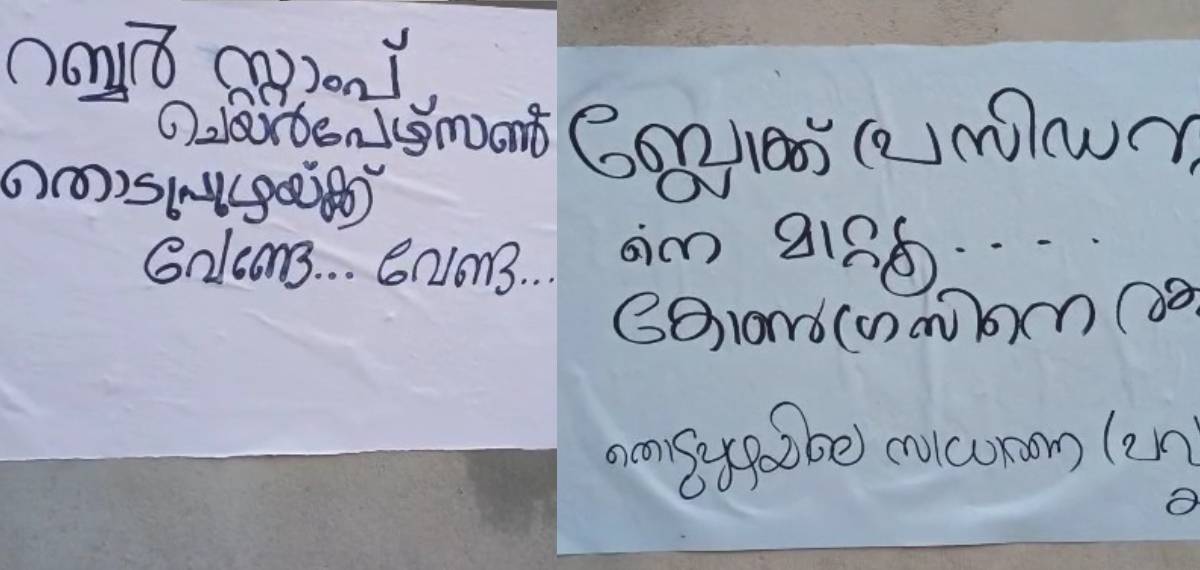 റബ്ബർ സ്റ്റാംപ്
ചെയർപേഴ്സൺ
തൊടുപുഴയ്ക്ക്
വേണ്ടേ... വേണ്ട...
ബ്ലോക്ക് പ്രസിഡന്റ
നെ മാറ്റൂ.....
കോൺഗ്രസിനെ
തൊടുപുഴയിലെ സാധാരണ